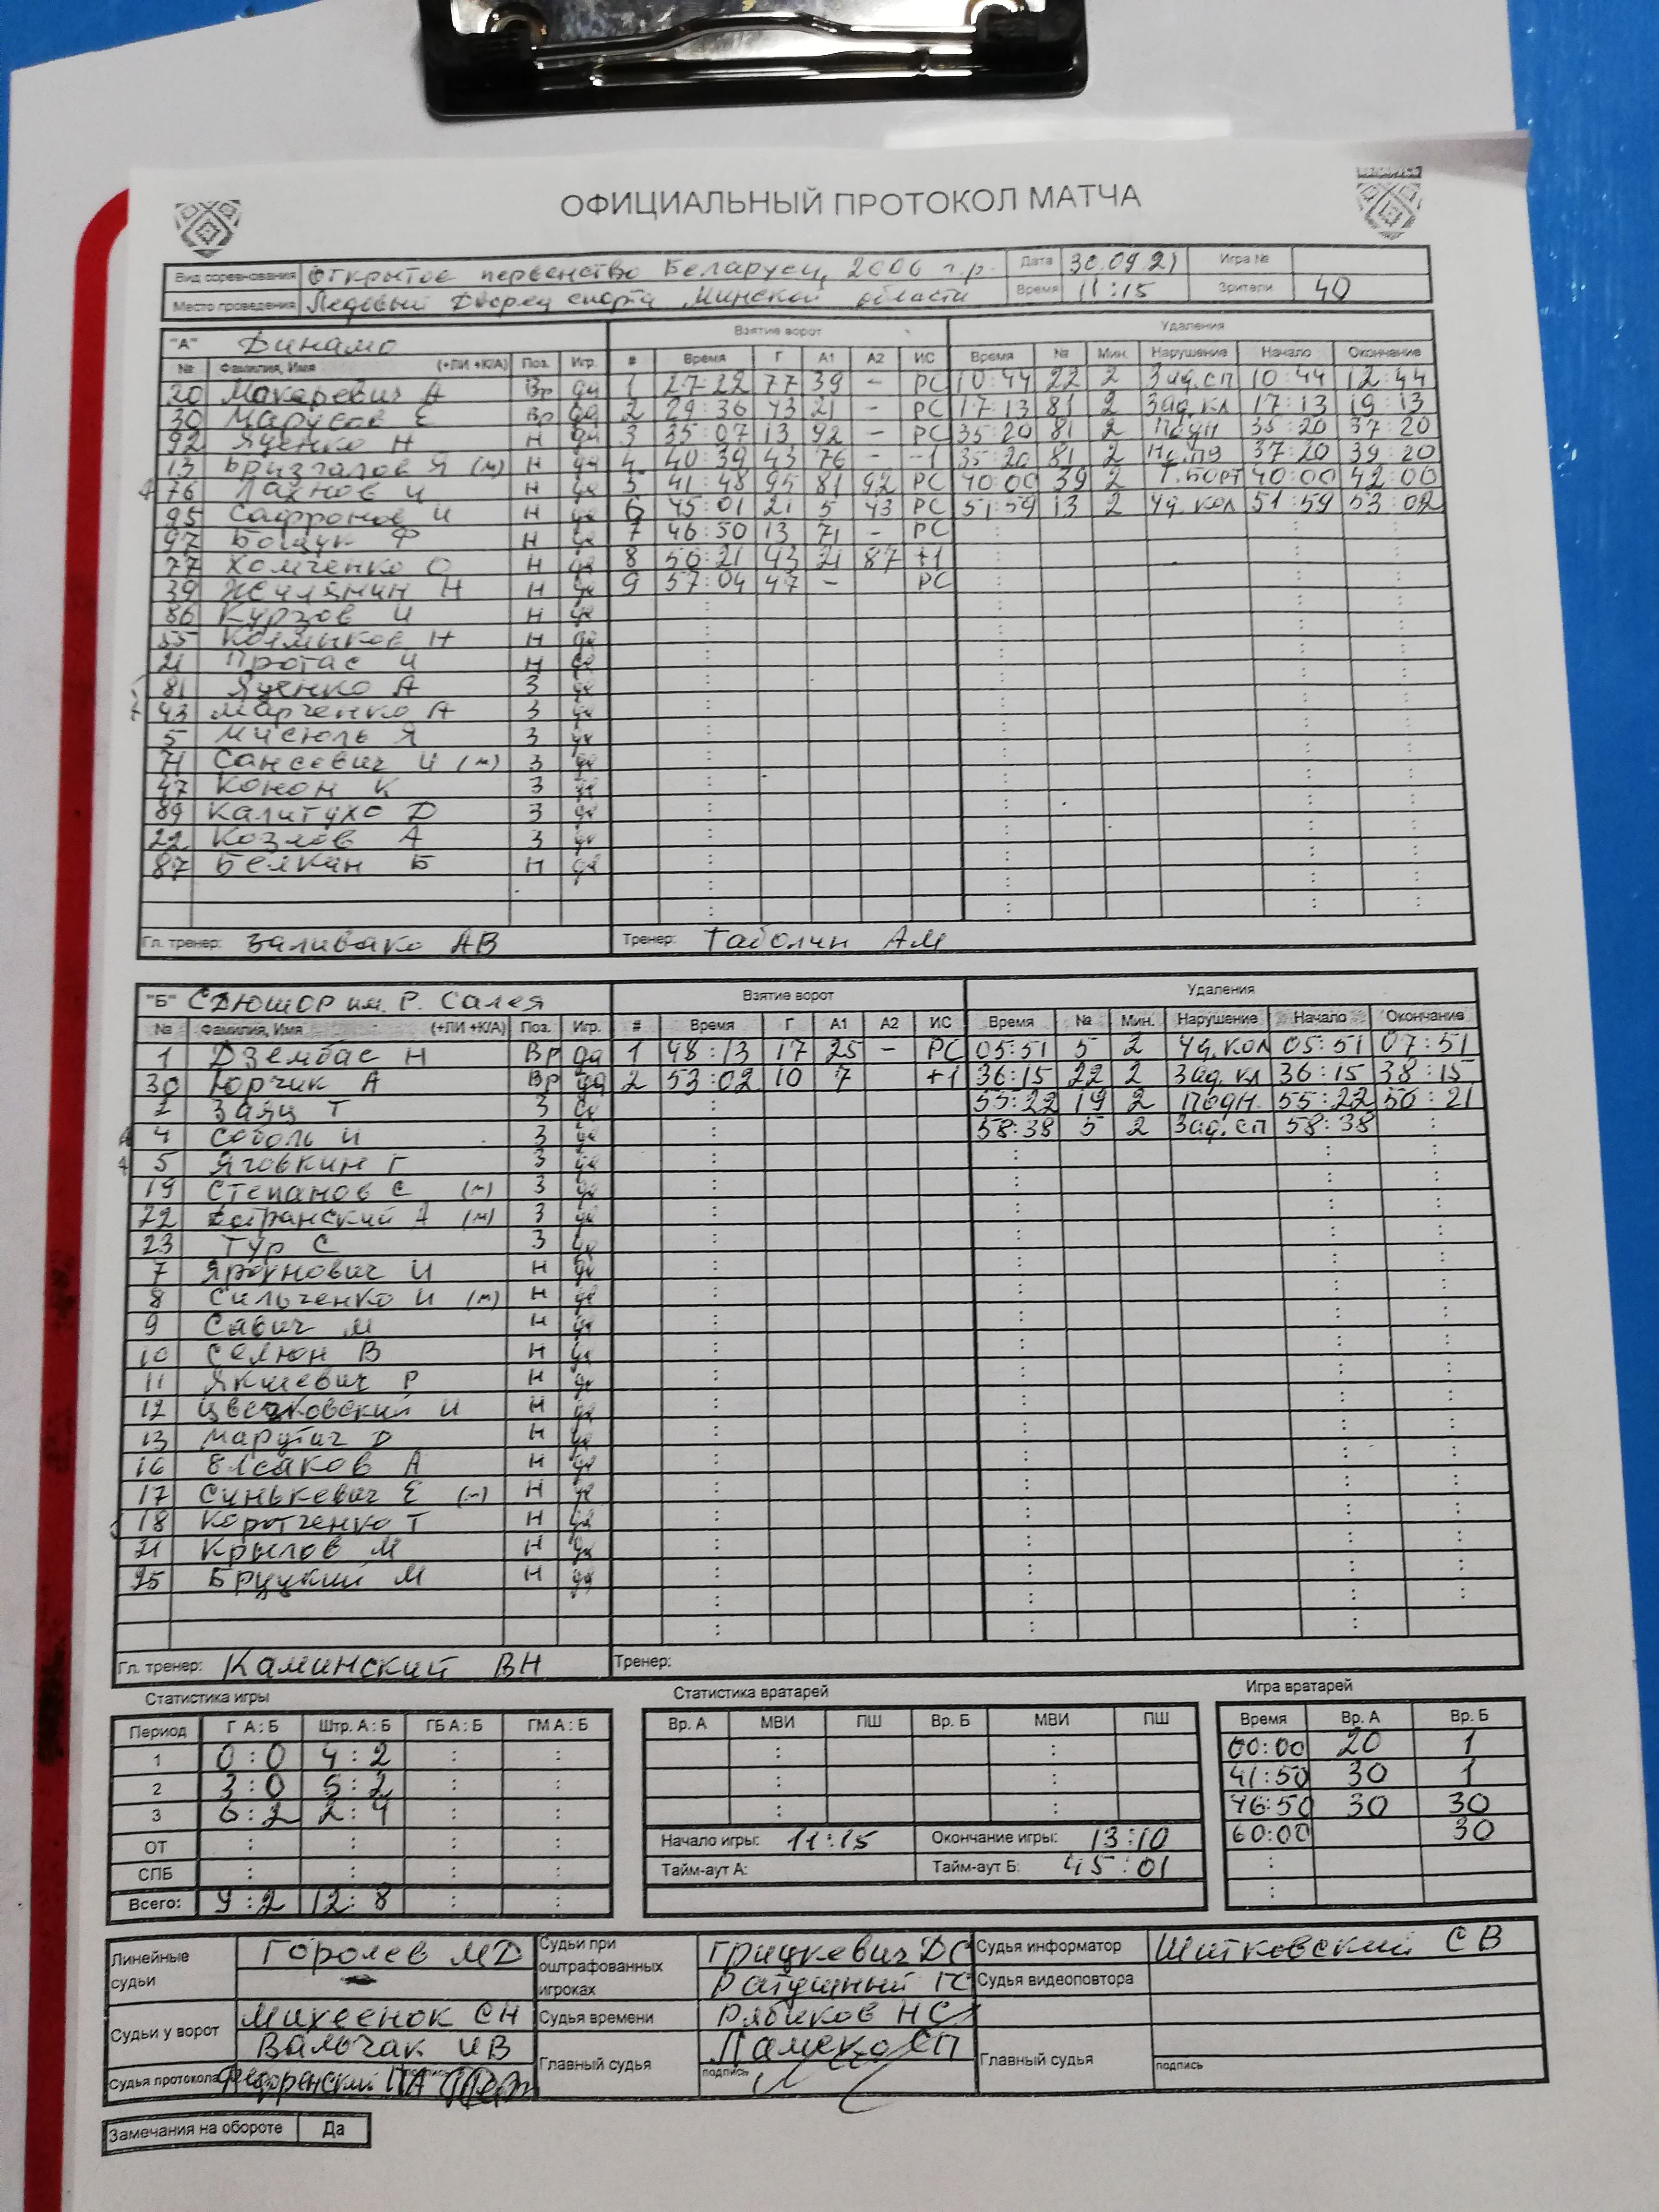 ОФИЦИАЛЬНЫЙ ПРОТОКОЛ МАТЧА
Вид соревнования Открытое первенство Беларуси, 2006 г.р. Дата 30.09.21 Игра №
Место проведения Ледовый Дворец спорта Минской области Время 11:15 Зрители 40
"А" Динамо Взятие ворот Удаления
№ Фамилия, Имя (+ЛИ +К/А) Поз. Игр. # Время Г А1 А2 ИС Время № Мин. Нарушение Начало Окончание
20 Макаревич А Вр да 1 27:22 77 39 - РС 10:44 22 2 Зад.сп 10:44 12:44
30 Марусов Е Вр да 2 29:36 43 21 - РС 17:13 81 2 Зад.кл 17:13 19:13
92 Яценко Н Н да 3 35:07 13 92 - РС 35:20 81 2 Подн 35:20 37:20
13 Бризгалов Я (м) Н да 4 40:39 43 76 - -1 35:20 81 2 37:20 39:20
76 Лахнов И Н да 5 41:48 95 81 92 РС 40:00 39 2 Т.борт 40:00 42:00
95 Сафронов И Н да 6 45:01 21 5 43 РС 51:59 13 2 Уд.кол 51:59 53:02
97 Бощук Ф Н да 7 46:50 13 71 - РС
77 Хомченко О Н да 8 56:21 43 21 87 +1
39 Жчилянин Н Н да 9 57:04 47 - РС
86 Курзов И Н да
55 Колмыков Н Н да
21 Протас И Н да
81 Яценко А З да
43 Марченко А З да
5 Мисюль Я З да
71 Сансевич И (м) З да
47 Конон К З да
89 Калитухо Д З да
22 Козлов А З да
87 Белкин Б Н да
Гл. тренер: Заливако АВ Тренер: Таболин АМ
"Б" СДЮШОР им. Р. Салея Взятие ворот Удаления
№ Фамилия, Имя (+ЛИ +К/А) Поз. Игр. # Время Г А1 А2 ИС Время № Мин. Нарушение Начало Окончание
1 Дзембас Н Вр да 1 48:13 17 25 - РС 05:51 5 2 Уд.кол 05:51 07:51
30 Юрчик А Вр да 2 53:02 10 7 +1 36:15 22 2 Зад.кл 36:15 38:15
2 Заяц Т З да 55:22 19 2 Подн. 55:22 56:21
4 Соболь И З да 58:38 5 2 Зад.сп 58:38
5 Яговкин Г З да
19 Степанов С (м) З да
22 А (м) З да
23 Тур С З да
7 Ярошнович И Н да
8 Сильченко И (м) Н да
9 Савич М Н да
10 Селюн В Н да
11 Якшевич Р Н да
12 Цвезковский И Н да
13 Марутич Д Н да
16 Елсаков А Н да
17 Синькевич Е (м) Н да
18 Коротченко Т Н да
21 Крылов М Н да
25 Бруцкий М Н да
Гл. тренер: Каминский ВН Тренер:
Статистика игры Статистика вратарей Игра вратарей
Период Г А : Б Штр. А : Б ГБ А : Б ГМ А : Б Вр. А МВИ ПШ Вр. Б МВИ ПШ Время Вр. А Вр. Б
1 0 : 0 4 : 2 00:00 20 1
2 3 : 0 6 : 2 41:50 30 1
3 6 : 2 2 : 4 46:50 30 30
ОТ Начало игры: 11:15 Окончание игры: 13:10 60:00 30
СПБ Тайм-аут А: Тайм-аут Б: 45:01
Всего: 9 : 2 12 : 8
Линейные судьи Горолев МД Судьи при оштрафованных игроках Грицкевич ДС Судья информатор Шитковский СВ
Ратушный ГС Судья видеоповтора
Судьи у ворот Михеенок СН Судья времени Рябиков НС
Вальчак ИВ Главный судья Ламеко СП Главный судья
Судья протокола Федоренский ПА подпись подпись подпись
Замечания на обороте Да